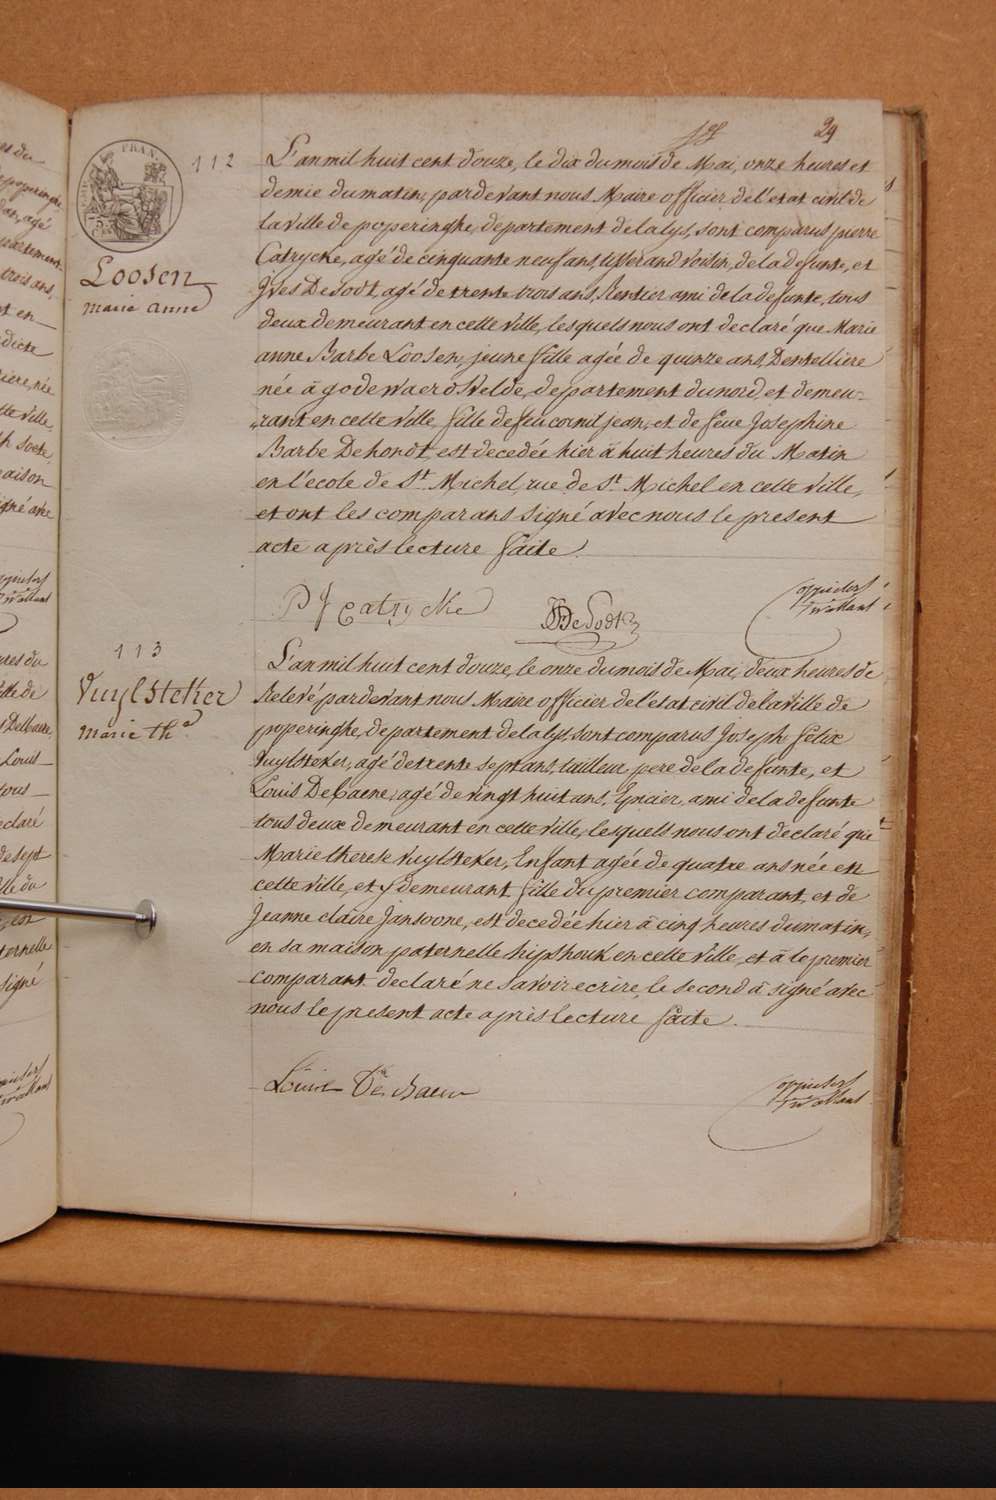 29
112
Loosen
marie anne
L'an mil huit cent douze, le dix du mois de Mai, onze heures et
demie du matin, pardevant nous Maire officier de l'état civil de
la ville de poperinghe, departement de la lys, sont comparus pierre
Catrycke, agé de cinquante neuf ans, tisserand voisin, de la defunte, et
Yves De Sodt, agé de trente trois ans, Rentier ami de la defunte, tous
deux demeurant en cette ville, lesquels nous ont declaré que Marie
anne Barbe Loosen, jeune fille agée de quinze ans, Dentelliere
née à godewaersvelde, departement du nord et demeu-
rant en cette ville fille de feu cornil jean, et de feue Josephine
Barbe Dehondt est decedée hier à huit heures du Matin
en l'école de St. Michel, rue de St. Michel en cette ville,
et ont les comparans signé avec nous le present
acte après lecture faite.
P J Catrycke
De Sodt
113
Vuylsteker
marie th.e
L'an mil huit cent douze, le onze du mois de Mai, deux heures de
Relevé pardevant nous Maire officier de l'etat civil de la ville de
poperinghe, departement de la lys, sont comparus Joseph felix
Vuylsteker, agé de trente sept ans, tailleur pere de la defunte, et
Louis DeCaene, agé de vingt huit ans, Epicier, ami de la defunte
tous deux demeurant en cette ville, lesquels nous ont declaré que
Marie therese Vuylsteker, Enfant agée de quatre ans née en
cette ville, et y demeurant fille du premier comparant, et de
Jeanne claire Jansoone, est decedée hier à cinq heures du matin,
en sa maison paternelle hipshouk en cette ville, et à le premier
comparant declaré ne savoir ecrire, le second à signé avec
nous le present acte après lecture faite.